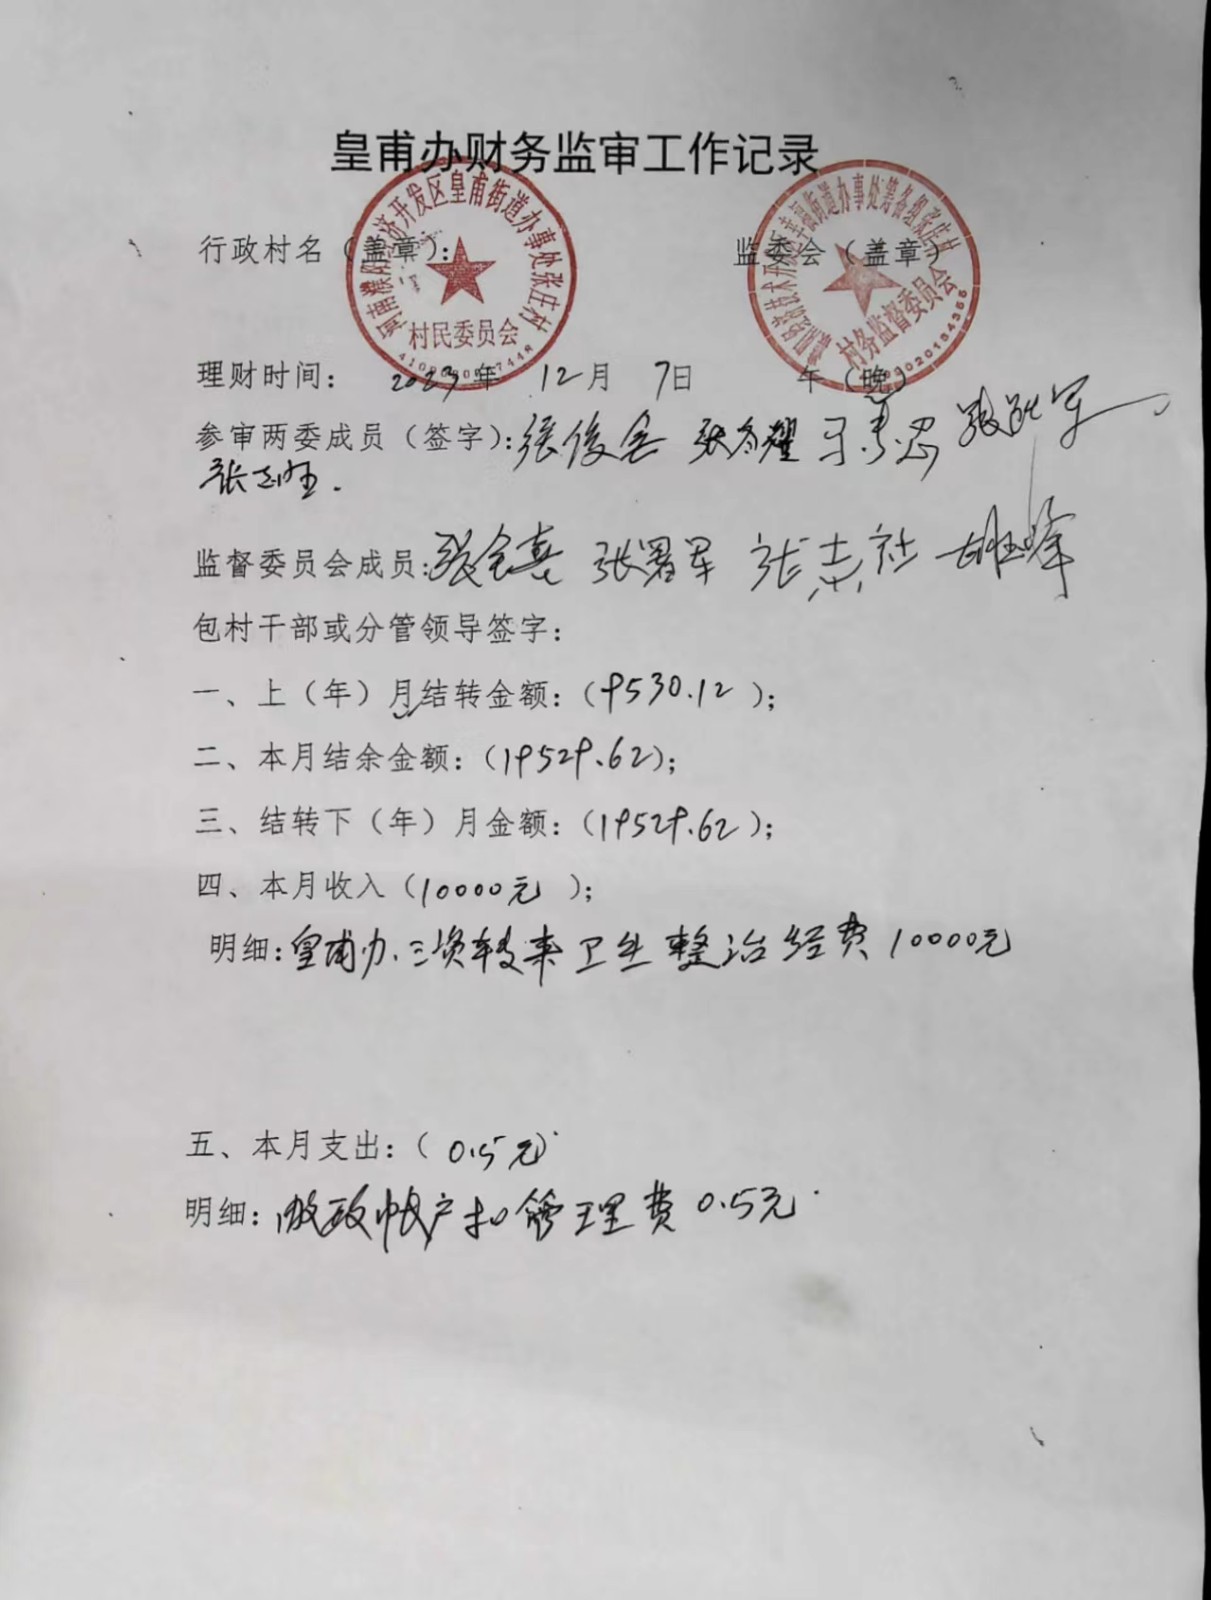 皇甫办财务监审工作记录
行政村名（盖章）： 监委会（盖章）
河南濮阳经济开发区皇甫街道办事处张庄村
村民委员会
村务监督委员会
理财时间： 2023年 12月 7日 午（晚）
参审两委成员（签字）：张俊
监督委员会成员：张会喜 张署军 张志社
包村干部或分管领导签字：
一、上（年）月结转金额：（9530.12）；
二、本月结余金额：（19529.62）；
三、结转下（年）月金额：（19529.62）；
四、本月收入（10000元）；
明细：皇甫办三资转来卫生整治经费10000元
五、本月支出：（0.5元）
明细：帐户扣管理费0.5元